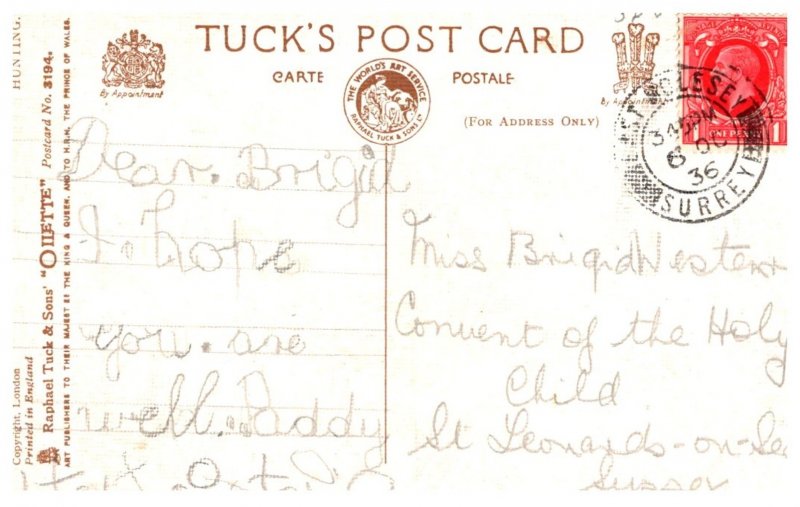 TUCK'S POST CARD
CARTE POSTALE
By Appointment
THE WORLD'S ART SERVICE
RAPHAEL TUCK & SONS LTD
By Appointment
(FOR ADDRESS ONLY)
HUNTING.
Raphael Tuck & Sons' "OILETTE" Postcard No. 3194.
ART PUBLISHERS TO THEIR MAJESTIES THE KING & QUEEN, AND TO H.R.H. THE PRINCE OF WALES.
Copyright, London
Printed in England
MOLESEY
6 OC
36
SURREY
ONE PENNY
Dear. Brigid
I. hope
you. are
well. Paddy
Miss Brigid Western
Convent of the Holy
Child
St Leonards-on-Sea
Sussex